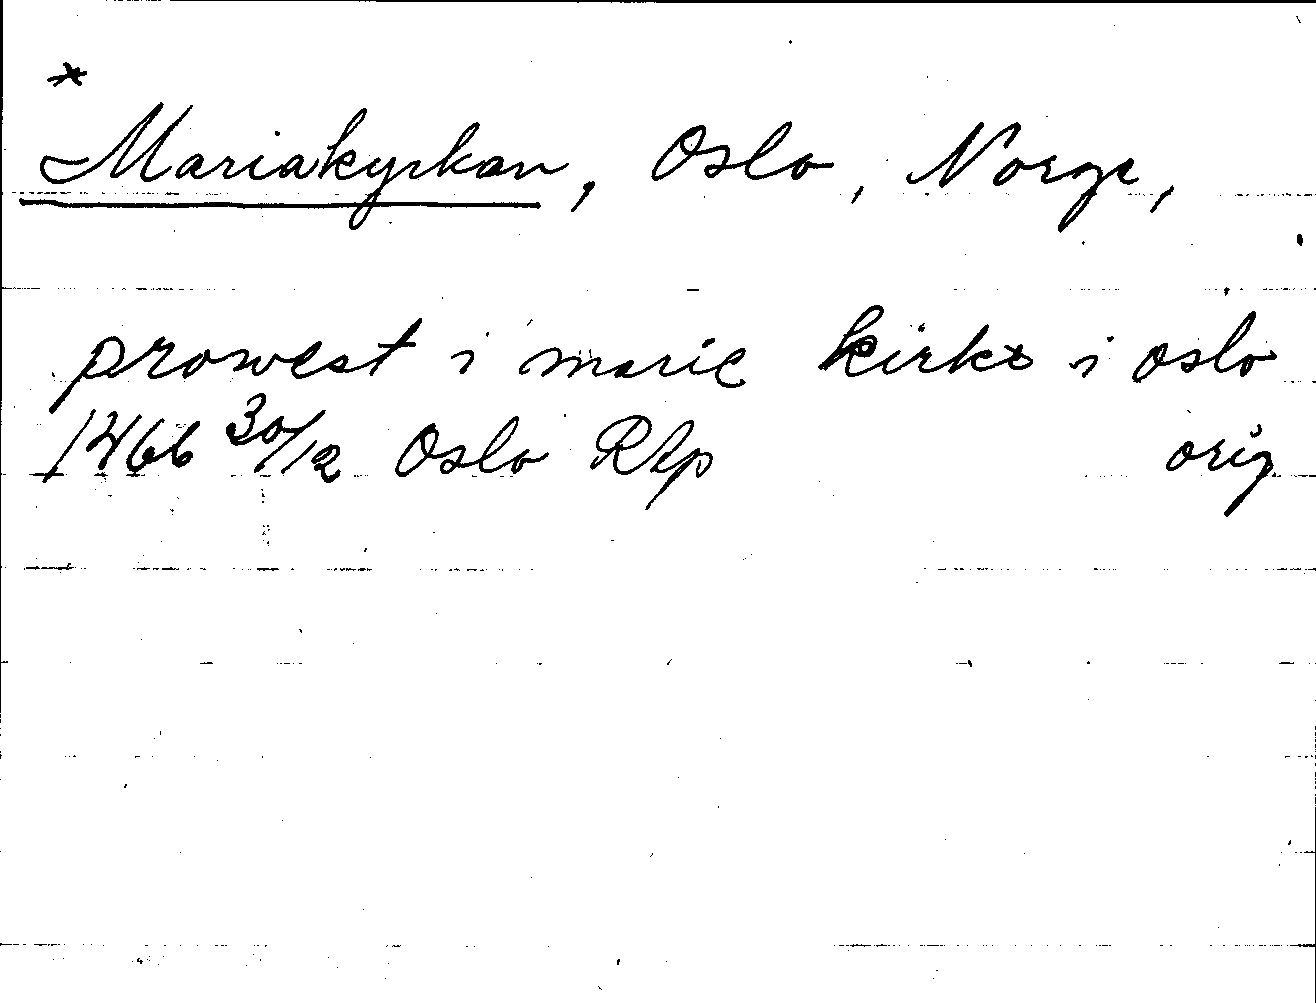 *
Mariakyrkan, Oslo, Norge,
prowest i marie kirke i oslo
1466 30/12 Oslo RAp orig